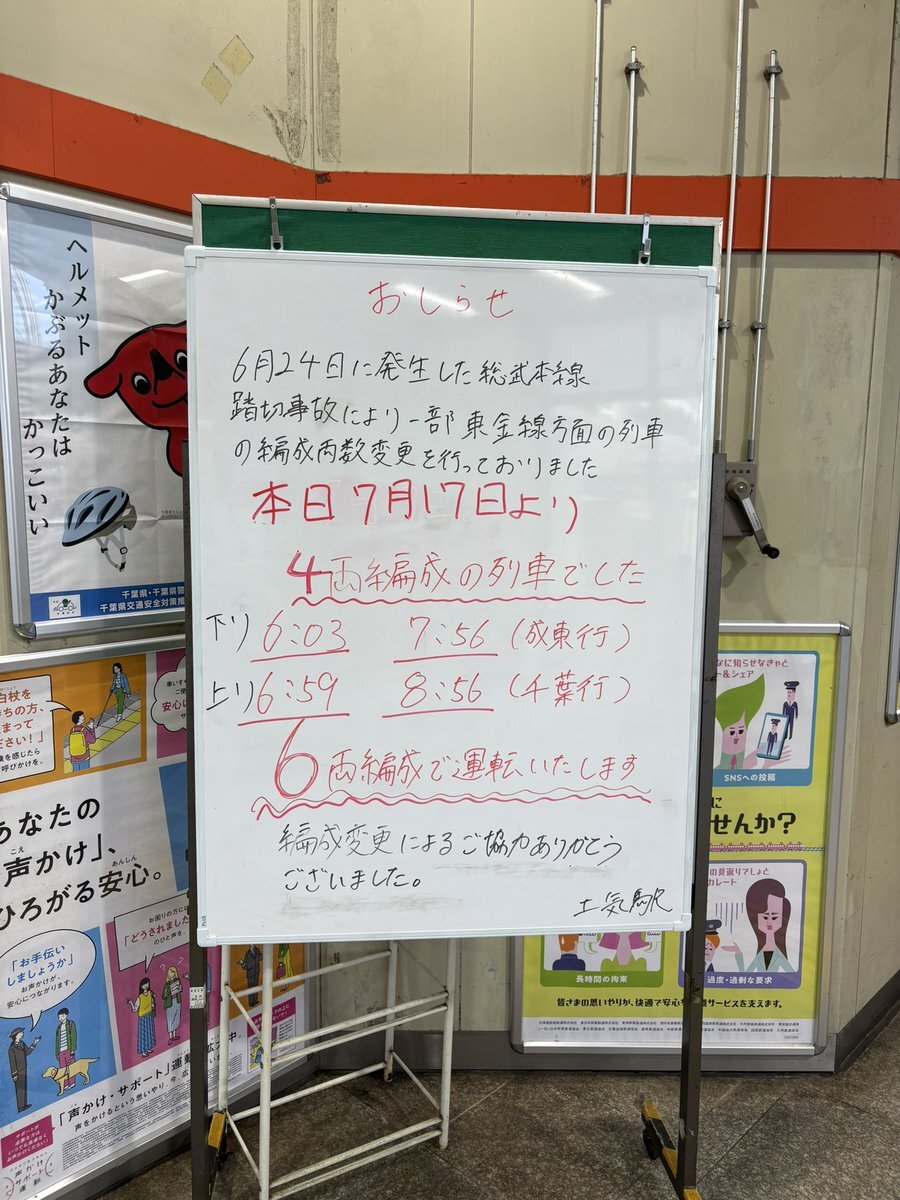 おしらせ
6月24日に発生した総武本線
踏切事故により一部東金線方面の列車
の編成両数変更を行っておりました
本日7月17日より
4両編成の列車でした
下り 6:03 7:56 (成東行)
上り 6:59 8:56 (千葉行)
6両編成で運転いたします
編成変更によるご協力ありがとう
ございました。
土気駅
ヘルメット
かぶるあなたは
かっこいい
千葉県・千葉県警
千葉県交通安全対策推
白杖を
ちの方、
まって
ださい!」
を感じたら
呼びかけを。
車いす
ご使
安心に
あなたの
こえ
声かけ」、
あんしん
ひろがる安心。
「お手伝い
しましょうか」
お声かけが、
安心につながります。
お困りの方には
「どうされました
のひと声を。
「声かけ・サポート」運動
声をかけるという思いやり、今、広
声かけ
サポート
運動
なに知らせなきゃと
ー&シェア
SNSへの投稿
に
せんか?
の見返りでしょと
カレート
長時間の拘束
過度・過剰な要求
皆さまの思いやりが、快適で安心な
サービスを支えます。